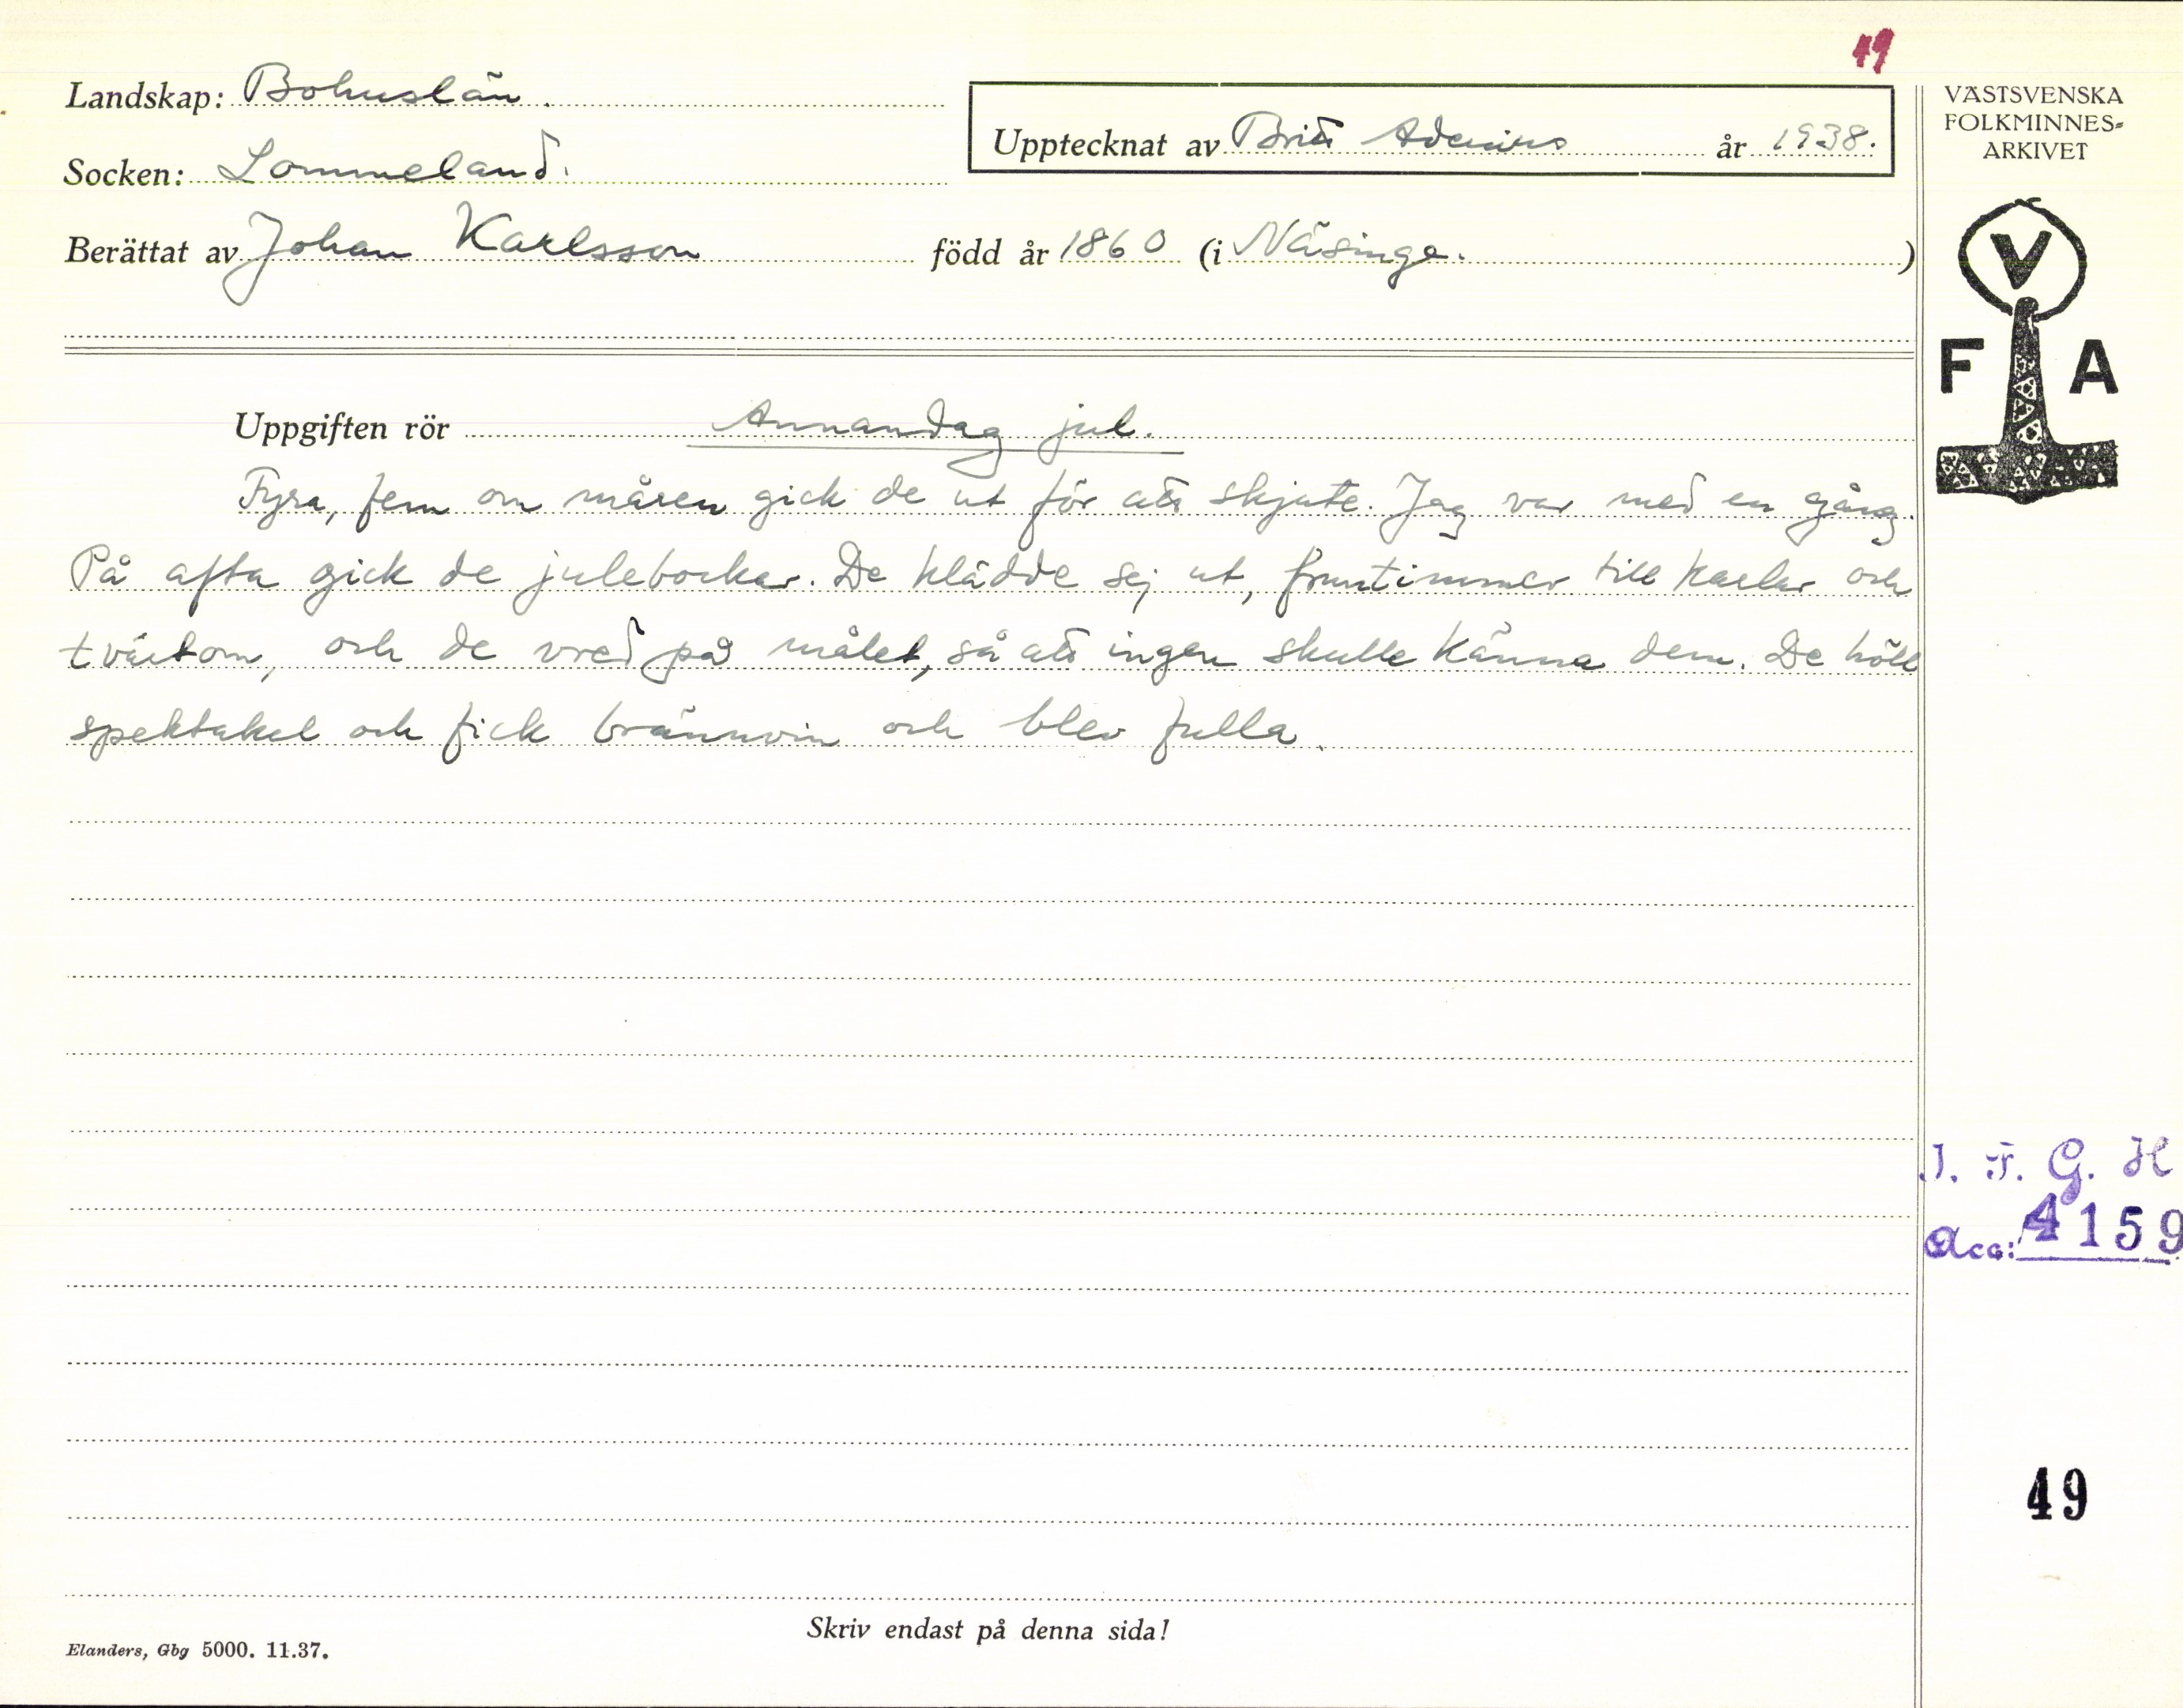 49
Landskap: Bohuslän.
Upptecknat av Britt år 1938.
Socken: Lommeland.
Berättat av Johan Karlsson född år 1860 (i Näsinge. )
VÄSTSVENSKA
FOLKMINNES-
ARKIVET
V
F A
Uppgiften rör Annandag jul.
Fyra, fem om måren gick de ut för att skjute. Jag var med en gång.
På afta gick de julebockar. De klädde sej ut, fruntimmer till karlar och
tvärtom, och de vred på målet, så att ingen skulle känna dem. De höll
spektakel och fick brännvin och blev fulla.
I. F. G. H
Acc: 4159
49
Skriv endast på denna sida!
Elanders, Gbg 5000. 11.37.